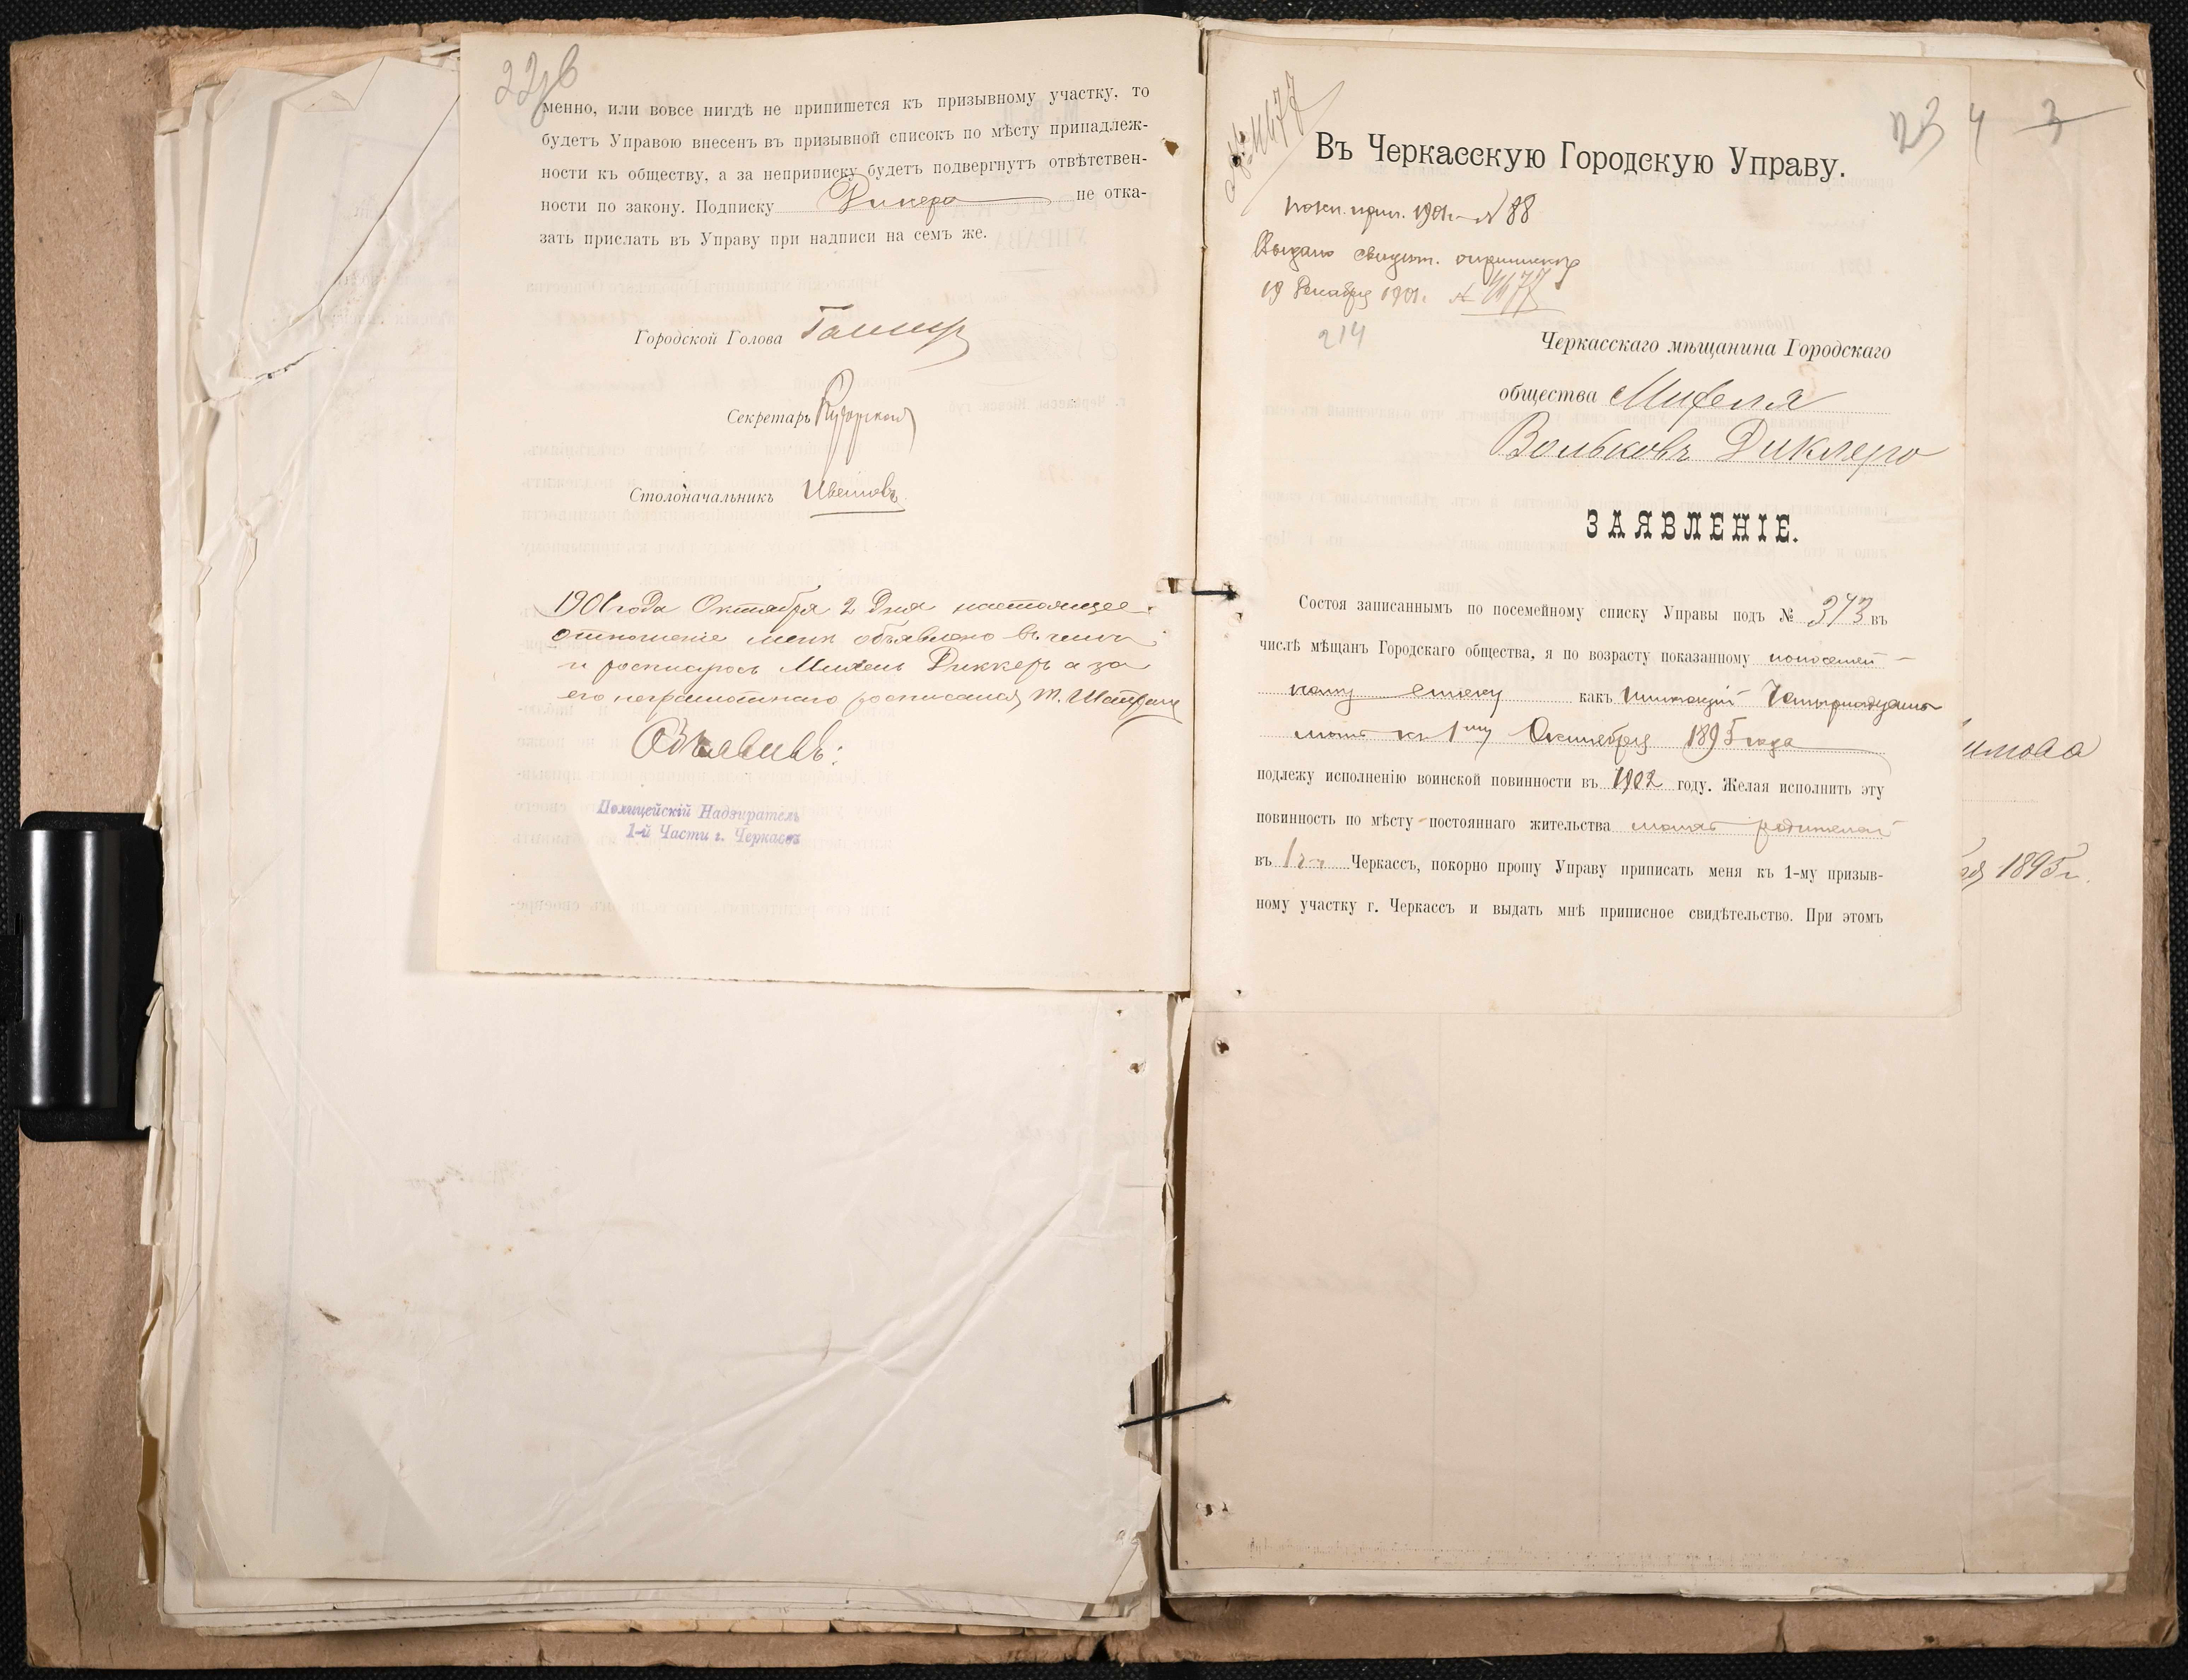 22 об
менно, или вовсе нигдѣ не припишется къ призывному участку, то
будетъ Управою внесенъ въ призывной списокъ по мѣсту принадлеж-
ности къ обществу, а за неприписку будетъ подвергнутъ отвѣтствен-
ности по закону. Подписку Дикера не отка-
зать прислать въ Управу при надписи на семъ же.
Городской Голова
Секретарь
Столоначальникъ Ивановъ
1901 года Октября 2 дня настоящее
отношение мнѣ объявлено въ чемъ
и росписуюсь Михель Диккеръ а за
его неграмотнаго росписался М.
Объявилъ:
Полицейскій Надзиратель
1-й Части г. Черкассъ
23 4 3
№ 4677
Въ Черкасскую Городскую Управу.
1901 г. № 88
Выдано свидѣт. о припискѣ
19 Декабря 1901 г. № 4677
214
Черкасскаго мѣщанина Городскаго
общества Михеля
Вольковъ Диклеро
ЗАЯВЛЕНІЕ.
Состоя записаннымъ по посемейному списку Управы подъ № 373 въ
числѣ мѣщанъ Городскаго общества, я по возрасту показанному по посемей-
ному списку какъ имѣющій Четырнадцать
лѣтъ къ 1му Октября 1895 года
подлежу исполненію воинской повинности въ 1902 году. Желая исполнить эту
повинность по мѣсту постояннаго жительства моихъ родителей
въ г. Черкассъ, покорно прошу Управу приписать меня къ 1-му призыв-
ному участку г. Черкассъ и выдать мнѣ приписное свидѣтельство. При этомъ
1895 г.